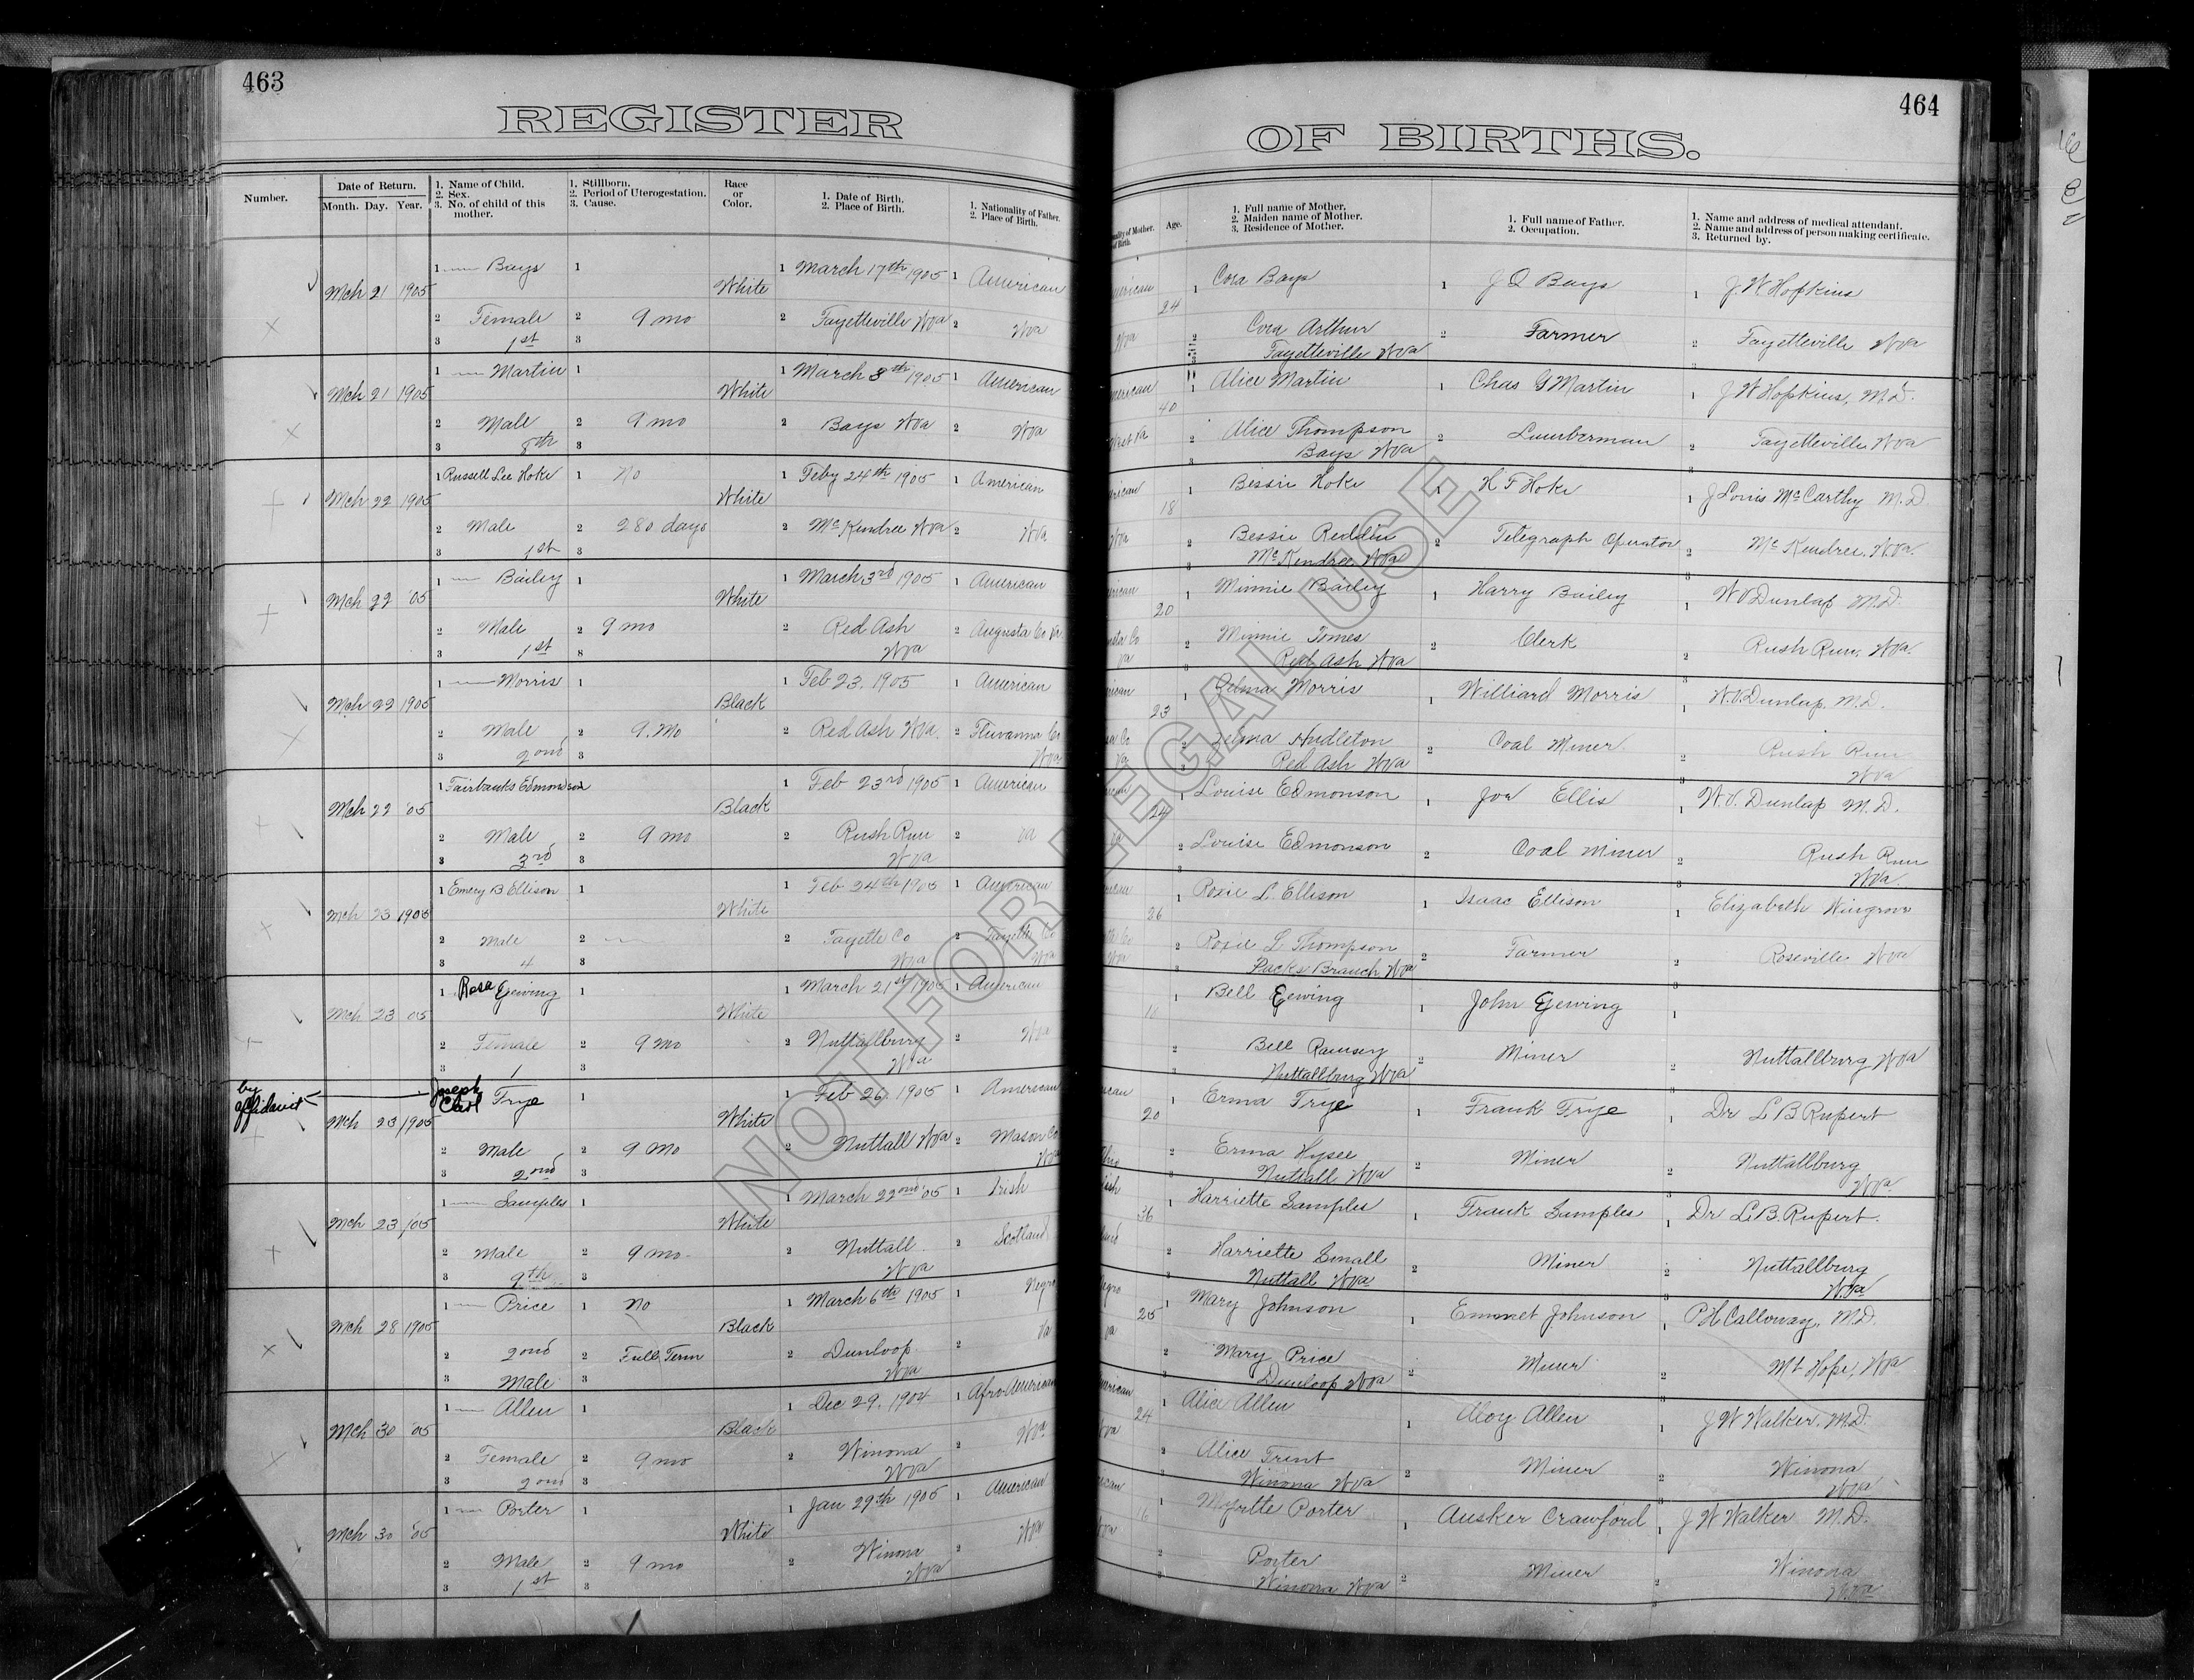 463
REGISTER
Number.
Date of Return.
Month. Day. Year.
1. Name of Child.
2. Sex.
3. No. of child of this mother.
1. Stillborn.
2. Period of Uterogestation.
3. Cause.
Race or Color.
1. Date of Birth.
2. Place of Birth.
1. Nationality of Father.
2. Place of Birth.
464
OF BIRTHS.
Age.
1. Full name of Mother.
2. Maiden name of Mother.
3. Residence of Mother.
1. Full name of Father.
2. Occupation.
1. Name and address of medical attendant.
2. Name and address of person making certificate.
3. Returned by.
Mch 21 1905 1 Bays 1 White 1 March 17th 1905 1 American 24 1 Cora Bays 1 J Q Bays 1 J. W. Hopkins
2 Female 2 9 mo 2 Fayetteville WVa 2 WVa 2 Cora Arthur 2 Farmer 2 Fayetteville WVa
3 1st 3 Fayetteville WVa
Mch 21 1905 1 Martin 1 White 1 March 8th 1905 1 American 40 1 Alice Martin 1 Chas G Martin 1 J W Hopkins, M.D.
2 Male 2 9 mo 2 Bays WVa 2 WVa 2 Alice Thompson 2 Lumberman 2 Fayetteville WVa
3 8th 3 Bays WVa
Mch 22 1905 1 Russell Lee Hoke 1 No White 1 Feby 24th 1905 1 American 18 1 Bessie Hoke 1 H F Hoke 1 J Louis McCarthy M.D.
2 Male 2 280 days 2 McKendree WVa 2 WVa 2 Bessie Reddin 2 Telegraph Operator 2 McKendree, WVa.
3 1st 3 McKendree WVa
Mch 22 '05 1 Bailey 1 White 1 March 3rd 1905 1 American 20 1 Minnie Bailey 1 Harry Bailey 1 W V Dunlap M.D.
2 Male 2 9 mo 2 Red Ash WVa 2 Augusta Co Va 2 Minnie Tomes 2 Clerk 2 Rush Run, WVa.
3 1st 3 Red Ash WVa
Mch 22 1905 1 Morris 1 Black 1 Feb 23, 1905 1 American 23 1 Zelma Morris 1 Williard Morris 1 W.V. Dunlap. M.D.
2 Male 2 9. Mo 2 Red Ash WVa. 2 Fluvanna Co WVa 2 Zelma Hudleton 2 Coal Miner 2 Rush Run WVa
3 2ond 3 Red Ash WVa
Mch 22 '05 1 Fairbanks Edmondson Black 1 Feb 23rd 1905 1 American 24 1 Louise Edmonson 1 Joe Ellis 1 W.V. Dunlap M.D.
2 Male 2 9 mo 2 Rush Run WVa 2 Va 2 Louise Edmonson 2 Coal Miner 2 Rush Run WVa.
3 3rd 3
Mch 23 1905 1 Emery B Ellison 1 White 1 Feb 24th 1905 1 American 26 1 Roxie L. Ellison 1 Isaac Ellison 1 Elizabeth Wingrove
2 Male 2 2 Fayette Co WVa 2 Fayette Co WVa 2 Roxie L Thompson 2 Farmer 2 Roseville WVa
3 4 3 Packs Branch WVa
Mch 23 05 1 Rosa Gewing 1 White 1 March 21st 1905 1 American 18 1 Bell Gewing 1 John Gewing 1
2 Female 2 9 mo 2 Nuttallburg WVa 2 WVa 2 Bell Ramsey 2 Miner 2 Nuttallburg WVa
3 1 3 Nuttallburg WVa
by affidavit Mch 23 1905 Joseph Carl Frye 1 White 1 Feb 26 1905 1 American 20 1 Erma Frye 1 Frank Frye 1 Dr L B Rupert
2 Male 2 9 Mo 2 Nuttall WVa 2 Mason Co WVa 2 Erma Hysee 2 Miner 2 Nuttallburg WVa
3 2ond 3 Nuttall WVa
Mch 23, '05 1 Samples 1 White 1 March 22ond '05 1 Irish 36 1 Harriette Samples 1 Frank Samples 1 Dr L.B. Rupert.
2 Male 2 9 mo. 2 Nuttall WVa 2 Scotland 2 Harriette Small 2 Miner 2 Nuttallburg WVa
3 9th 3 Nuttall WVa
Mch 28 1905 1 Price 1 No Black 1 March 6th 1905 1 Negro 25 1 Mary Johnson 1 Emmet Johnson 1 P H Calloway, M.D.
2 2ond 2 Full Term 2 Dunloop WVa 2 Va 2 Mary Price 2 Miner 2 Mt Hope, WVa
3 Male 3 Dunloop WVa
Mch 30 '05 1 Allen 1 Black 1 Dec 29, 1904 1 Afro-American 24 1 Alice Allen 1 Aloy Allen 1 J W Walker. M.D.
2 Female 2 9 mo 2 Winona WVa 2 WVa 2 Alice Trent 2 Miner 2 Winona WVa
3 2ond 3 Winona WVa
Mch 30 '05 1 Porter 1 White 1 Jan 29th 1905 1 American 16 1 Myrtte Porter 1 Ausker Crawford 1 J W Walker M.D.
2 Male 2 9 mo 2 Winona WVa 2 WVa 2 Porter 2 Miner 2 Winona WVa
3 1st 3 Winona WVa
NOT FOR LEGAL USE